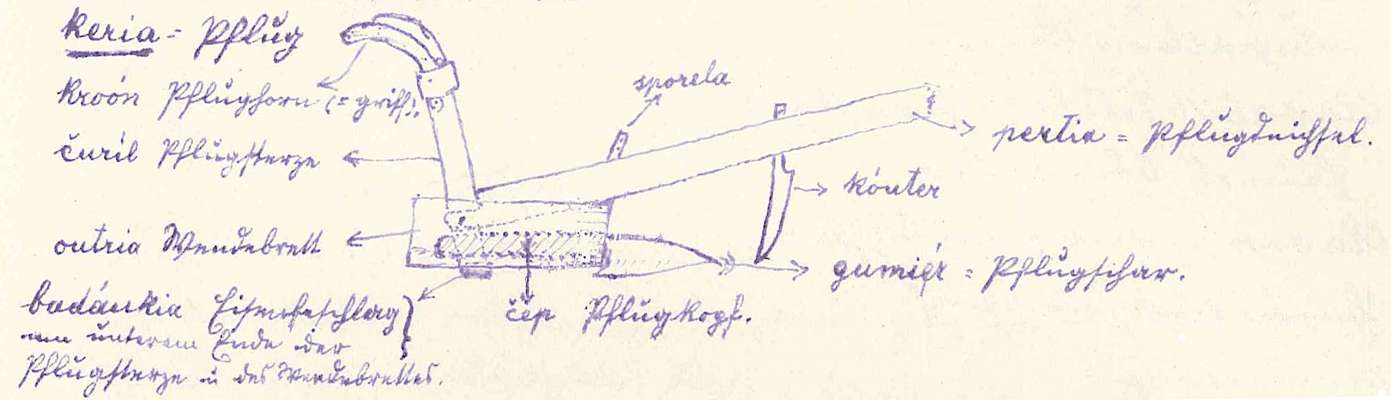 keria = Pflug
kroón Pflughorn (=griff).
sporela
čuril Pflugsterze
pertia = Pflugdeichsel.
kónter
outria Wendebrett
gumiér = Pflugschar.
badánkia Eisenbeschlag
am unterem Ende der
Pflugsterze u des Wendebrettes.
čep Pflugkopf.